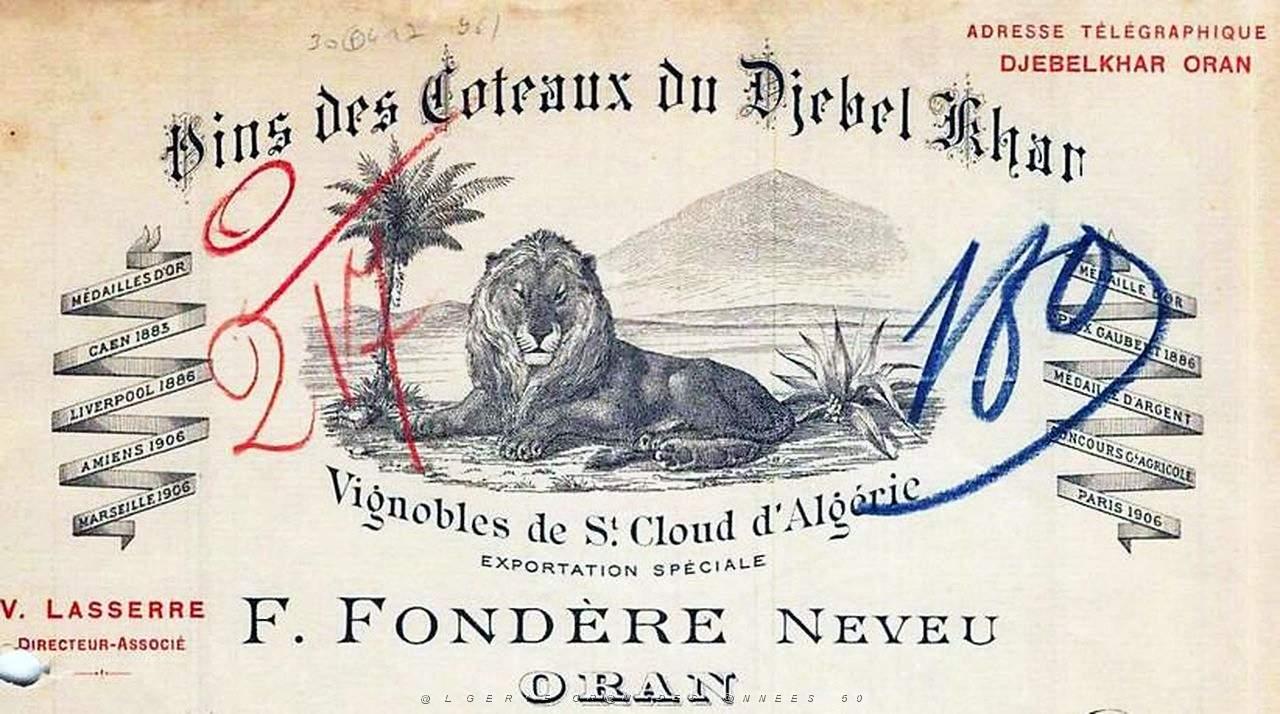 ADRESSE TÉLÉGRAPHIQUE
DJEBELKHAR ORAN
Vins des Coteaux du Djebel Khar
MÉDAILLES D'OR
CAEN 1883
LIVERPOOL 1886
AMIENS 1906
MARSEILLE 1906
MÉDAILLE D'OR
PRIX GAUBERT 1886
MÉDAILLE D'ARGENT
CONCOURS GAL AGRICOLE
PARIS 1906
0
217
180
Vignobles de St. Cloud d'Algérie
EXPORTATION SPÉCIALE
V. LASSERRE
DIRECTEUR-ASSOCIÉ
F. FONDÈRE NEVEU
ORAN